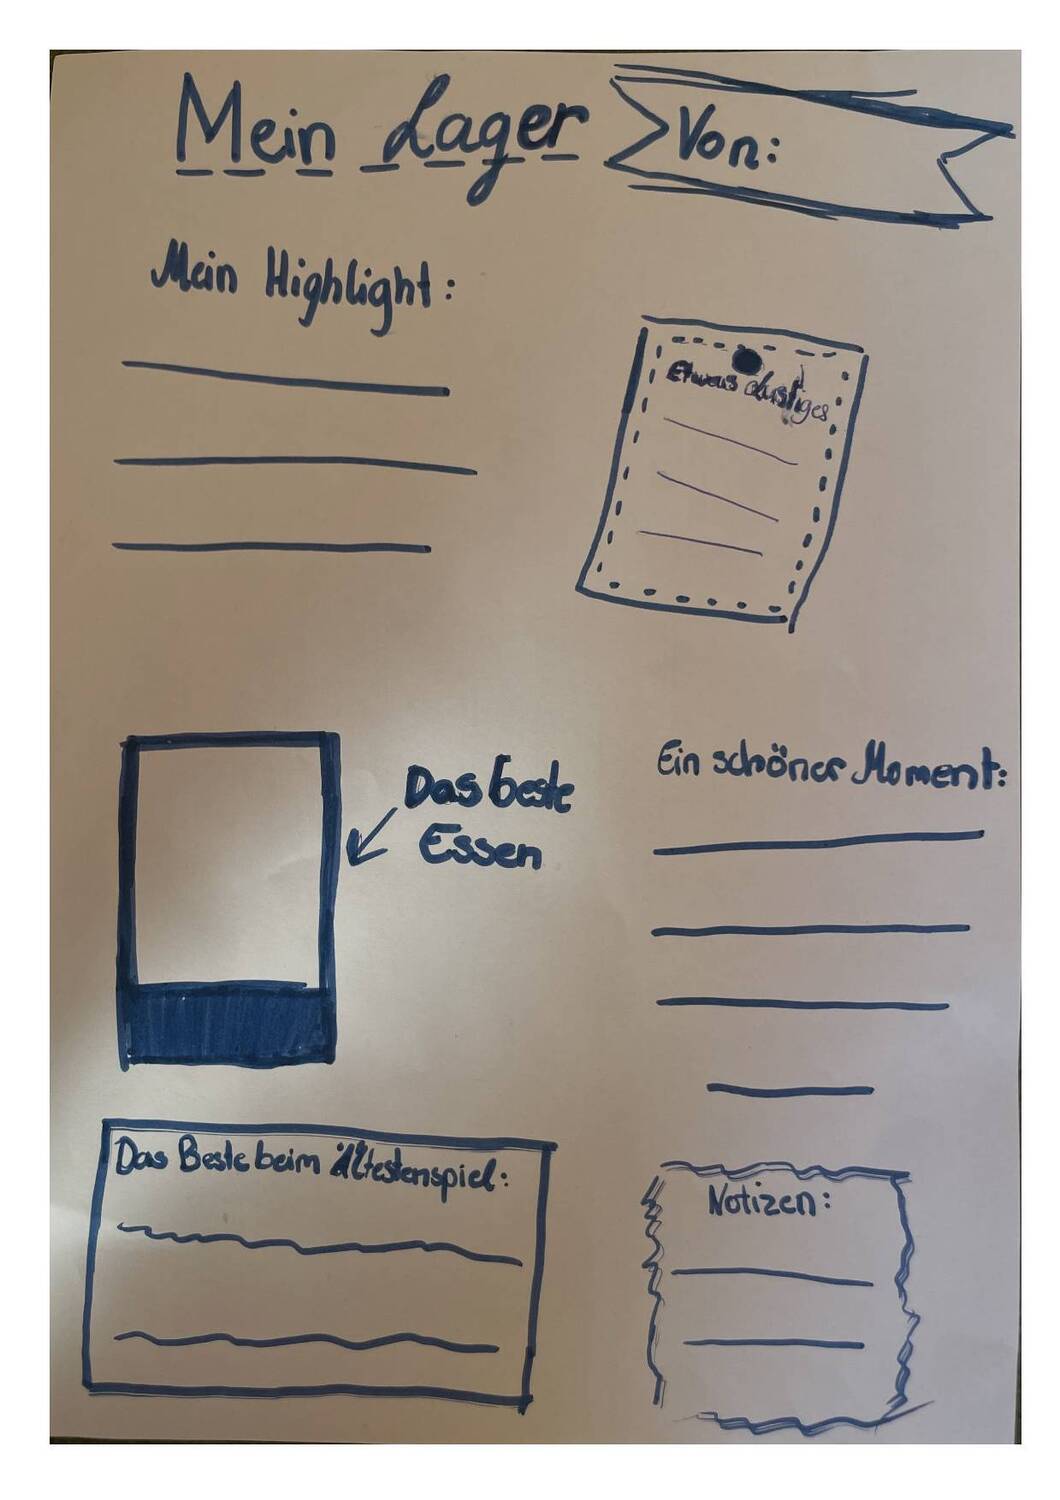 Mein Lager
Von:
Mein Highlight:
Etwas Lustiges
Das beste
Essen
Ein schöner Moment:
Das Beste beim Ältestenspiel:
Notizen: